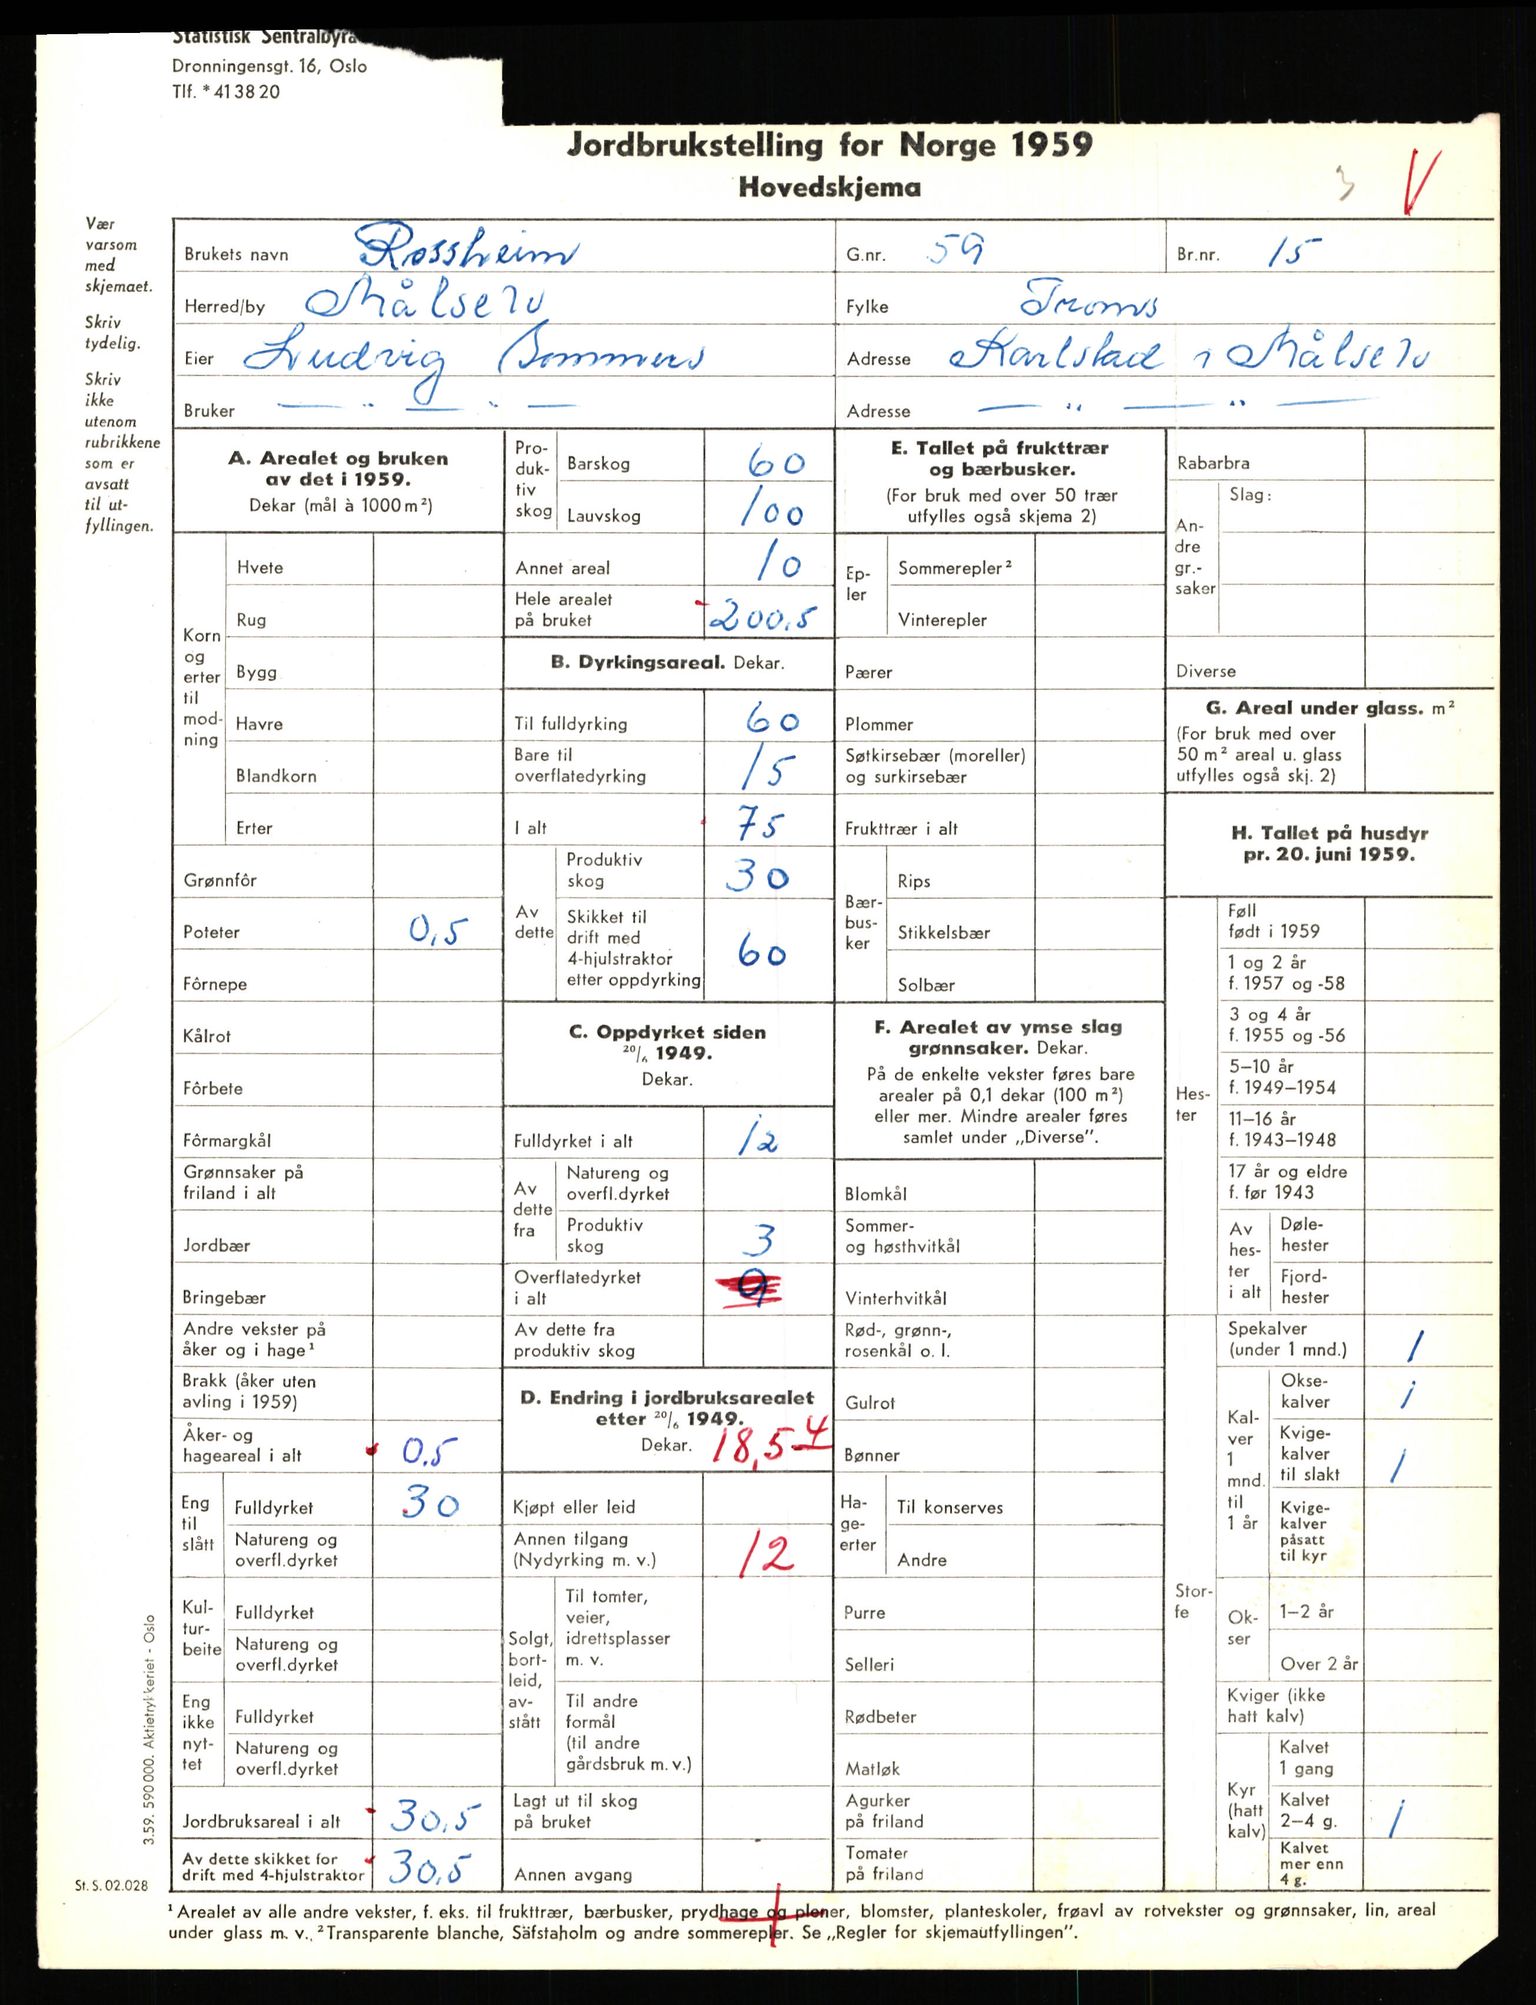 Dronningensgt. 16, Oslo
Tlf. *413820
Jordbrukstelling for Norge 1959
Hovedskjema
3 V
Vær
varsom
med
skjemaet.
Skriv
tydelig.
Skriv
ikke
utenom
rubrikkene
som er
avsatt
til ut-
fyllingen.
Brukets navn Rossheim G.nr. 59 Br.nr. 15
Herred/by Målselv Fylke Troms
Eier Ludvig Sommers Adresse Karlstad i Målselv
Bruker — " — " — Adresse — " — " —
A. Arealet og bruken
av det i 1959.
Dekar (mål à 1000 m²)
Korn
og
erter
til
mod-
ning
Hvete
Rug
Bygg
Havre
Blandkorn
Erter
Grønnfôr
Poteter 0,5
Fôrnepe
Kålrot
Fôrbete
Fôrmargkål
Grønnsaker på
friland i alt
Jordbær
Bringebær
Andre vekster på
åker og i hage¹
Brakk (åker uten
avling i 1959)
Åker- og
hageareal i alt 0.5
Eng
til
slått
Fulldyrket 30
Natureng og
overfl.dyrket
Kul-
tur-
beite
Fulldyrket
Natureng og
overfl.dyrket
Eng
ikke
nyt-
tet
Fulldyrket
Natureng og
overfl.dyrket
Jordbruksareal i alt 30,5
Av dette skikket for
drift med 4-hjulstraktor 30,5
Pro-
duk-
tiv
skog
Barskog 60
Lauvskog 100
Annet areal 10
Hele arealet
på bruket 200,5
B. Dyrkingsareal. Dekar.
Til fulldyrking 60
Bare til
overflatedyrking 15
I alt 75
Av
dette
Produktiv
skog 30
Skikket til
drift med
4-hjulstraktor
etter oppdyrking 60
C. Oppdyrket siden
20/6 1949.
Dekar.
Fulldyrket i alt 12
Av
dette
fra
Natureng og
overfl.dyrket
Produktiv
skog 3
Overflatedyrket
i alt 9
Av dette fra
produktiv skog
D. Endring i jordbruksarealet
etter 20/6 1949.
Dekar. 18,5 4
Kjøpt eller leid
Annen tilgang
(Nydyrking m. v.) 12
Solgt,
bort-
leid,
av-
stått
Til tomter,
veier,
idrettsplasser
m. v.
Til andre
formål
(til andre
gårdsbruk m. v.)
Lagt ut til skog
på bruket
Annen avgang
E. Tallet på frukttrær
og bærbusker.
(For bruk med over 50 trær
utfylles også skjema 2)
Ep-
ler
Sommerepler²
Vinterepler
Pærer
Plommer
Søtkirsebær (moreller)
og surkirsebær
Frukttrær i alt
Bær-
bus-
ker
Rips
Stikkelsbær
Solbær
F. Arealet av ymse slag
grønnsaker. Dekar.
På de enkelte vekster føres bare
arealer på 0,1 dekar (100 m²)
eller mer. Mindre arealer føres
samlet under „Diverse".
Blomkål
Sommer-
og høsthvitkål
Vinterhvitkål
Rød-, grønn-,
rosenkål o. l.
Gulrot
Bønner
Ha-
ge-
erter
Til konserves
Andre
Purre
Selleri
Rødbeter
Matløk
Agurker
på friland
Tomater
på friland
Rabarbra
An-
dre
gr.-
saker
Slag:
Diverse
G. Areal under glass. m²
(For bruk med over
50 m² areal u. glass
utfylles også skj. 2)
H. Tallet på husdyr
pr. 20. juni 1959.
Hes-
ter
Føll
født i 1959
1 og 2 år
f. 1957 og -58
3 og 4 år
f. 1955 og -56
5–10 år
f. 1949–1954
11–16 år
f. 1943–1948
17 år og eldre
f. før 1943
Av
hes-
ter
i alt
Døle-
hester
Fjord-
hester
Stor-
fe
Spekalver
(under 1 mnd.) 1
Kal-
ver
1
mnd.
til
1 år
Okse-
kalver 1
Kvige-
kalver
til slakt 1
Kvige-
kalver
påsatt
til kyr
Ok-
ser
1–2 år
Over 2 år
Kviger (ikke
hatt kalv)
Kyr
(hatt
kalv)
Kalvet
1 gang
Kalvet
2–4 g. 1
Kalvet
mer enn
4 g.
3.59. 590 000. Aktietrykkeriet - Oslo
St. S. 02.028
¹ Arealet av alle andre vekster, f. eks. til frukttrær, bærbusker, prydhage og plener, blomster, planteskoler, frøavl av rotvekster og grønnsaker, lin, areal
under glass m. v. ² Transparente blanche, Säfstaholm og andre sommerepler. Se „Regler for skjemautfyllingen".